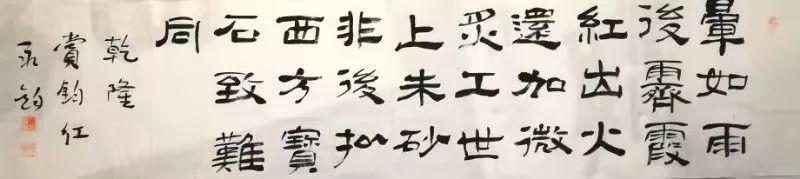 暈如雨
後霽霞
紅出火
還加微
炙工世
上朱砂
非後拟
西方寶
石致難
同
乾隆
賞鈞紅